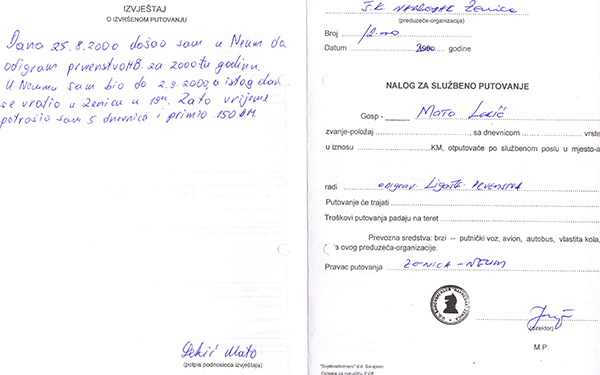 IZVJEŠTAJ
O IZVRŠENOM PUTOVANJU
Dana 25.8.2000 došao sam u Neum da
odigram prvenstvo HB. za 2000tu godinu.
U Neumu sam bio do 2.9.2000, a istog dan
se vratio u Zenicu u Zato vrijeme
potrošio sam 5 dnevnica i primio 150 KM.
Mato
(potpis podnosioca izvještaja)
Zenica
(preduzeće-organizacija)
Broj
Datum godine
NALOG ZA SLUŽBENO PUTOVANJE
Gosp - Mato
zvanje-položaj , sa dnevnicom vrste
u iznosu KM, otputovaće po službenom poslu u mjesto-a
radi odigrav.
Putovanje će trajati
Troškovi putovanja padaju na teret
Prevozna sredstva: brzi -- putnički voz, avion, autobus, vlastita kola,
a ovog preduzeća-organizacije.
Pravac putovanja ZENICA - NEUM
(direktor)
M.P.
"Svjetlostkomerc" d.d. Sarajevo